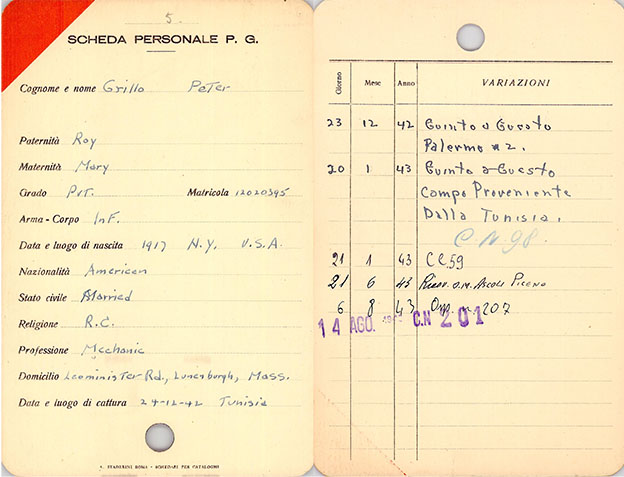 5
SCHEDA PERSONALE P. G.
Cognome e nome Grillo Peter
Paternità Roy
Maternità Mary
Grado Pvt. Matricola 12020395
Arma - Corpo Inf.
Data e luogo di nascita 1917 N.Y. U.S.A.
Nazionalità American
Stato civile Married
Religione R.C.
Professione Mechanic
Domicilio Leominister Rd., Lunenburgh, Mass.
Data e luogo di cattura 24-12-42 Tunisia
A. STADERINI ROMA - SCHEDARI PER CATALOGHI
Giorno Mese Anno VARIAZIONI
23 12 42 Guinto a Guesto
Palermo # 2.
20 1 43 Guinto a Guesto
Campo Proveniente
Dalla Tunisia.
C.N. 98.
21 1 43 CC 59
21 6 43 Ricov. O.M. Ascoli Piceno
6 8 43 207
14 AGO. C.N 201